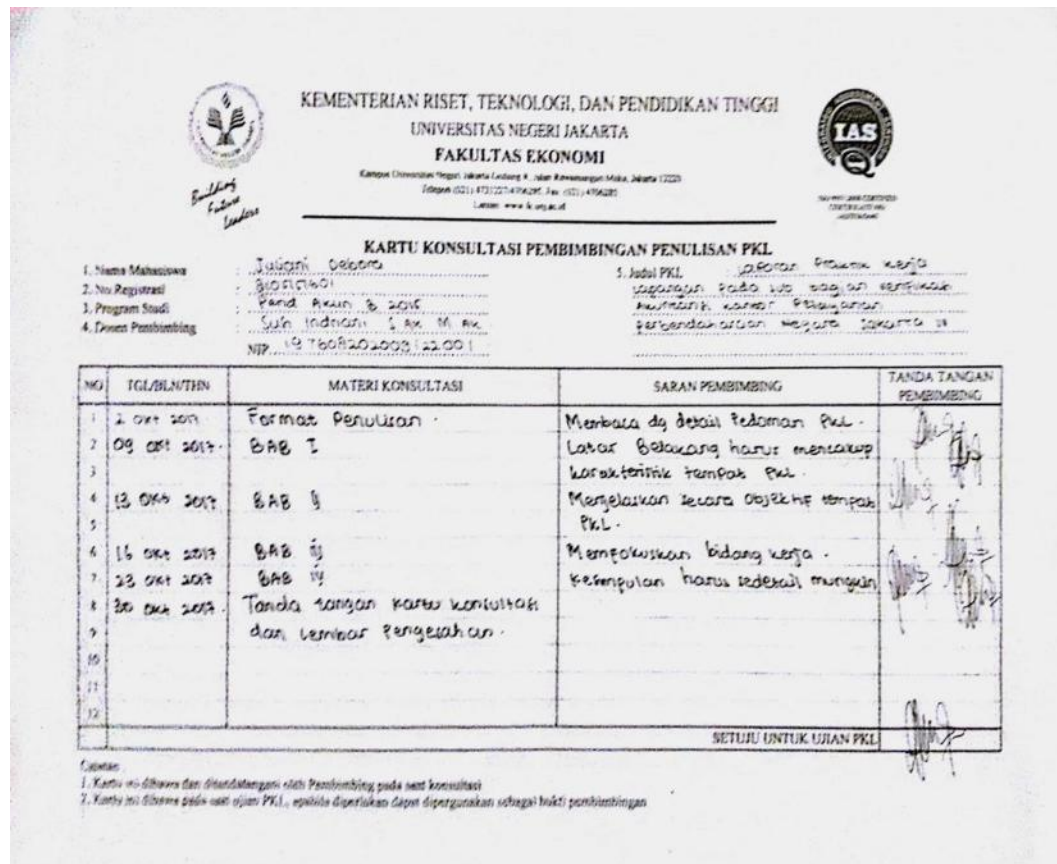 KEMENTERIAN RISET, TEKNOLOGI, DAN PENDIDIKAN TINGGI
UNIVERSITAS NEGERI JAKARTA
FAKULTAS EKONOMI
Building
Future
Leaders
IAS
KARTU KONSULTASI PEMBIMBINGAN PENULISAN PKL
1. Nama Mahasiswa : Juliani Debora
2. No Registrasi
3. Program Studi : Pend Akun B 2015
4. Dosen Pembimbing : Indriani
NIP.
5. Judul PKL : Laporan Praktik Kerja
Lapangan Pada Sub Bagian Verifikasi
Akuntansi Kantor Pelayanan
Perbendaharaan Negara Jakarta
NO TGL/BLN/THN MATERI KONSULTASI SARAN PEMBIMBING TANDA TANGAN PEMBIMBING
1 2 Okt 2017 Format Penulisan. Membaca dg detail Pedoman PKL.
2 09 Okt 2017. BAB I Latar Belakang harus mencakup
3 karakteristik tempat PKL.
4 13 Okt 2017 BAB II Menjelaskan secara objektif tempat
5 PKL.
6 16 Okt 2017 BAB III Memfokuskan bidang kerja.
7 23 Okt 2017 BAB IV Kesimpulan harus sedetail mungkin
8 30 Okt 2017. Tanda tangan kartu konsultasi
9 dan lembar Pengesahan.
10
11
12
SETUJU UNTUK UJIAN PKL
Catatan :
1. Kartu ini dibawa dan ditandatangani oleh Pembimbing pada saat konsultasi
2. Kartu ini dibawa pada saat ujian PKL, apabila diperlukan dapat dipergunakan sebagai bukti pembimbingan